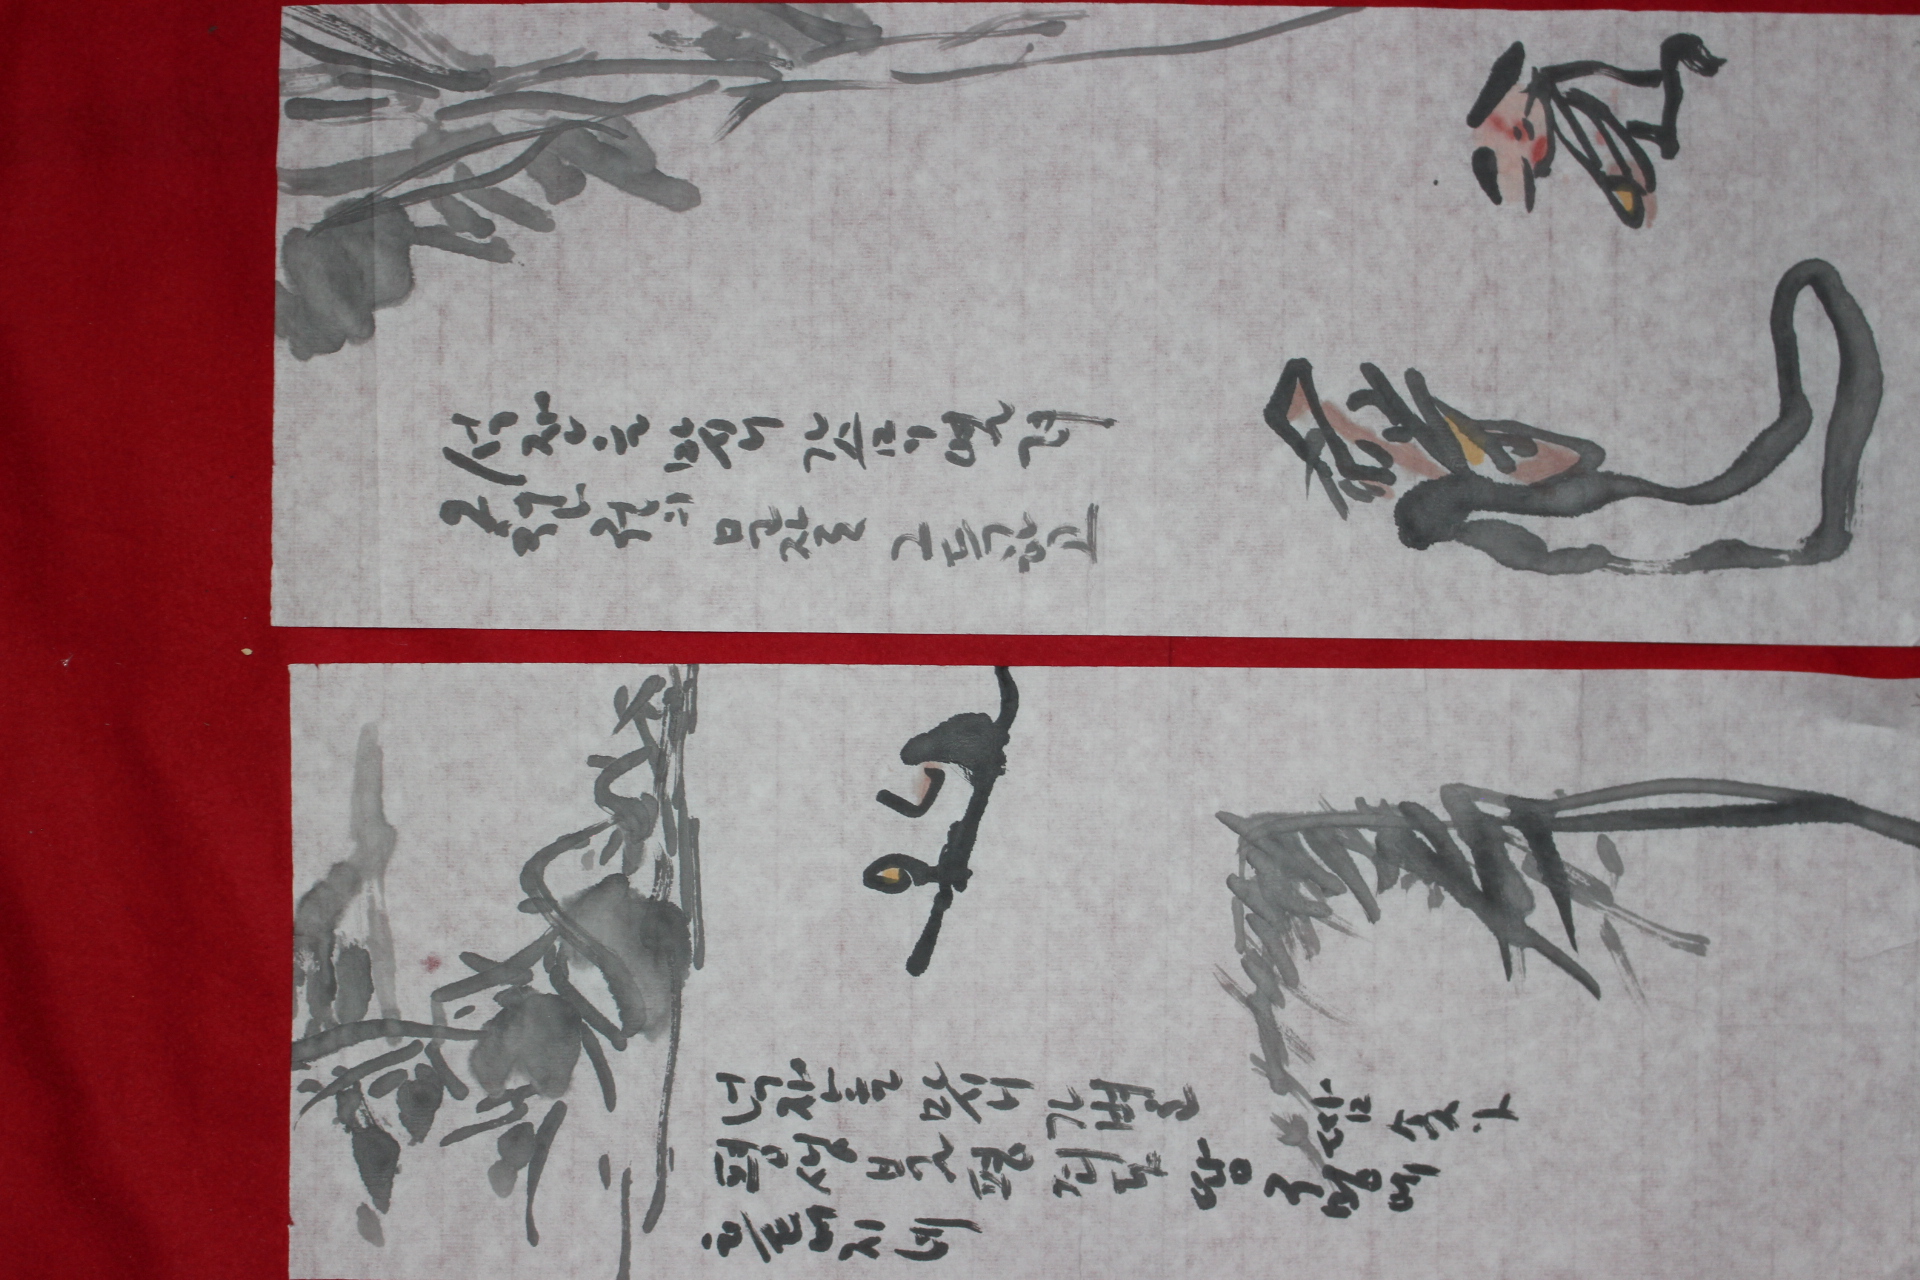 석잔을 마시니 가슴이 열려
권의 그득하고
넉잔을 마시니 가벼운 땀 솟아
평생 불평 죄다 땀 구멍에
흩어지네